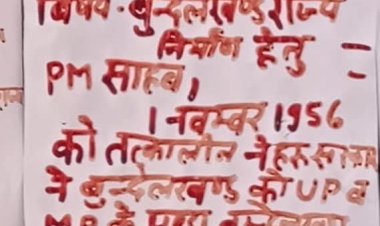 विषय-बुन्देलखण्ड राज्य
निर्माण हेतु
PM साहब,
1 नवम्बर 1956
को तत्कालीन नेहरू सरकार
ने बुन्देलखण्ड को UP व
MP के मध्य